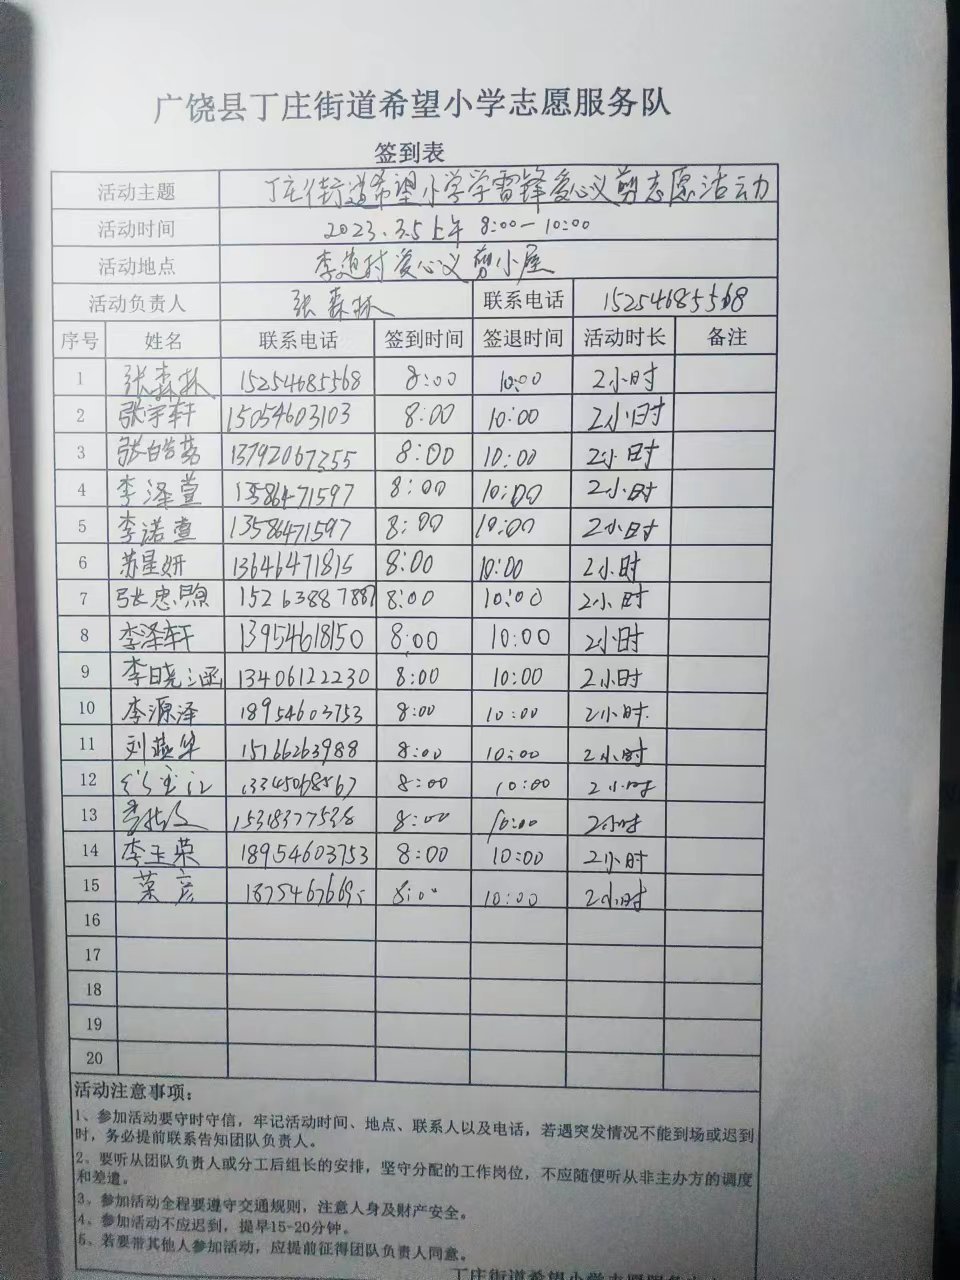 广饶县丁庄街道希望小学志愿服务队
签到表
活动主题 丁庄街道希望小学学雷锋爱心义剪志愿活动
活动时间 2023.3.5上午 8:00—10:00
活动地点 李道村爱心义剪小屋
活动负责人 张森林 联系电话 15254685568
序号 姓名 联系电话 签到时间 签退时间 活动时长 备注
1 张森林 15254685568 8:00 10:00 2小时
2 张宇轩 15054603103 8:00 10:00 2小时
3 张皓茗 13792067355 8:00 10:00 2小时
4 李泽萱 13586471597 8:00 10:00 2小时
5 李诺萱 13586471597 8:00 10:00 2小时
6 苏星妍 13646471815 8:00 10:00 2小时
7 张忠煦 15263887887 8:00 10:00 2小时
8 李泽轩 13954618150 8:00 10:00 2小时
9 李晓涵 13406122230 8:00 10:00 2小时
10 李源泽 18954603753 8:00 10:00 2小时
11 刘燕华 15166263988 8:00 10:00 2小时
12 13345068567 8:00 10:00 2小时
13 15318377538 8:00 10:00 2小时
14 李玉荣 18954603753 8:00 10:00 2小时
15 荣彦 8:00 10:00 2小时
16
17
18
19
20
活动注意事项：
1、参加活动要守时守信，牢记活动时间、地点、联系人以及电话，若遇突发情况不能到场或迟到
时，务必提前联系告知团队负责人。
2、要听从团队负责人或分工后组长的安排，坚守分配的工作岗位，不应随便听从非主办方的调度
和差遣。
3、参加活动全程要遵守交通规则，注意人身及财产安全。
4、参加活动不应迟到，提早15-20分钟。
5、若要带其他人参加活动，应提前征得团队负责人同意。
丁庄街道希望小学志愿服务